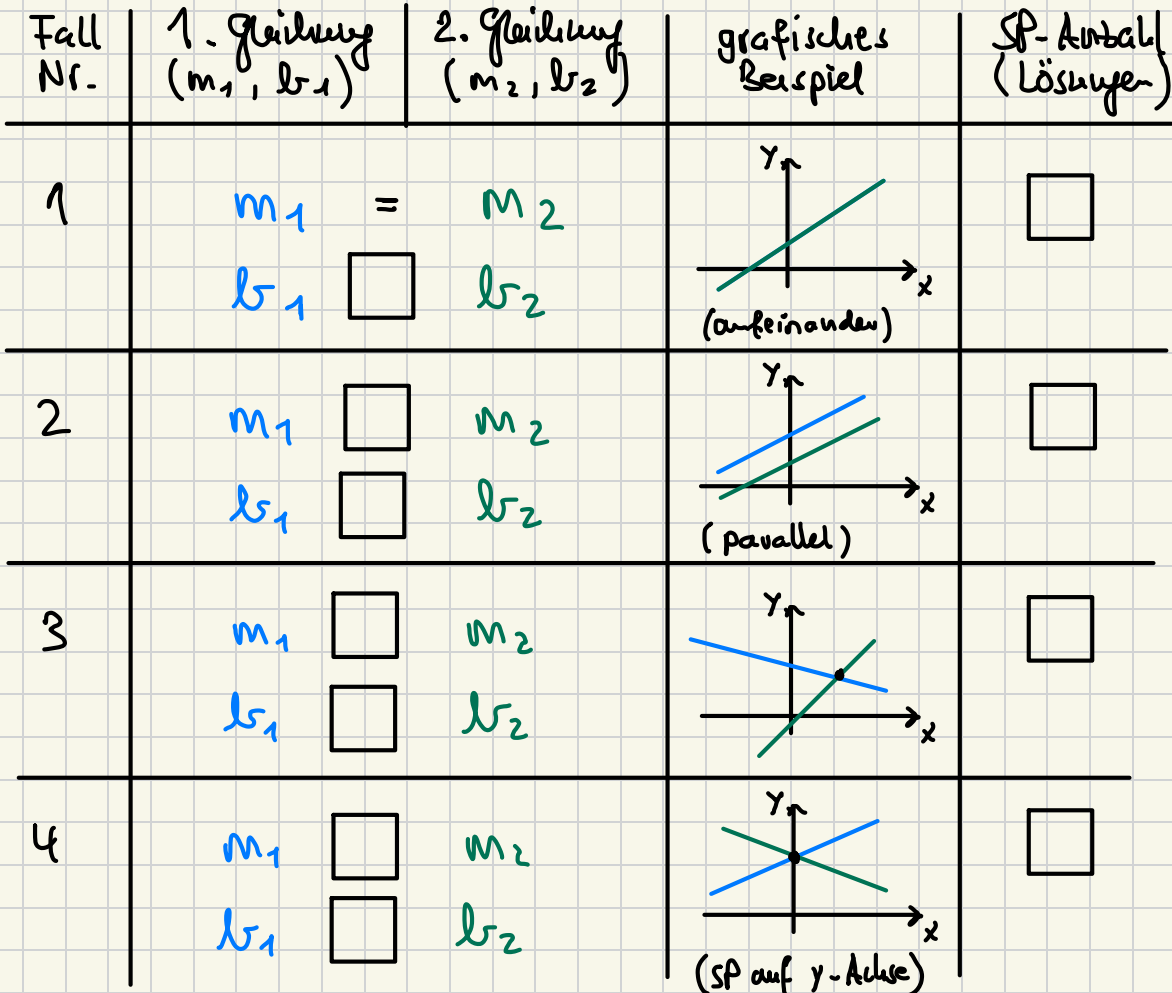 Fall Nr.
1. Gleichung (m1, b1)
2. Gleichung (m2, b2)
grafisches Beispiel
SP-Anzahl (Lösungen)
1
m1 = m2
b1 b2
y
x
(aufeinander)
2
m1 m2
b1 b2
y
x
(parallel)
3
m1 m2
b1 b2
y
x
4
m1 m2
b1 b2
y
x
(SP auf y-Achse)